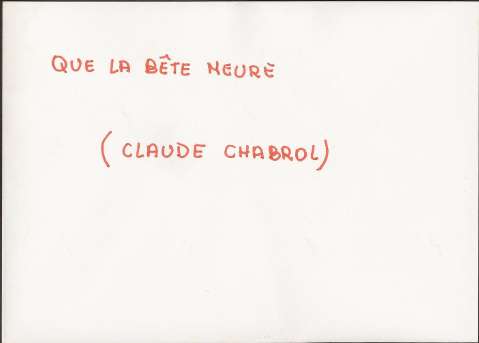 QUE LA BÊTE MEURE
(CLAUDE CHABROL)